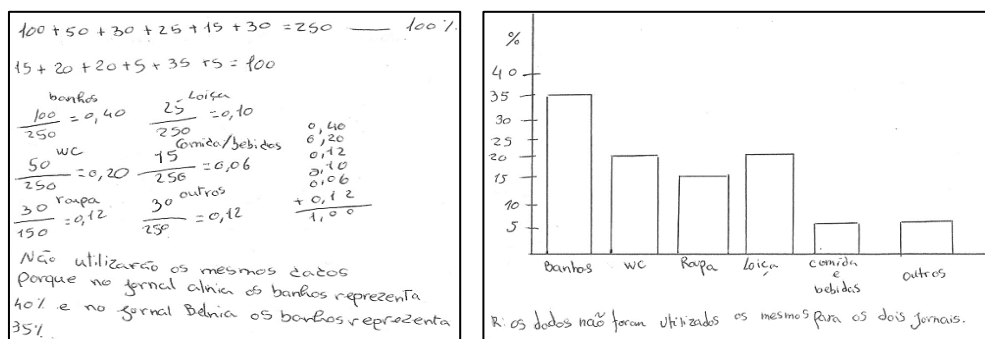 100 + 50 + 30 + 25 + 15 + 30 = 250 —— 100%
15 + 20 + 20 + 5 + 35 + 5 = 100
banhos
100/250 = 0,40
Loiça
25/250 = 0,10
WC
50/250 = 0,20
Comida/bebidas
15/250 = 0,06
roupa
30/150 = 0,12
outros
30/250 = 0,12
0,40
0,20
0,12
0,10
0,06
+ 0,12
1,00
Não utilizarão os mesmos dados
porque no jornal os banhos reprezenta
40% e no jornal os banhos reprezenta
35%
%
40
35
30
25
20
15
10
5
Banhos
WC
Roupa
Loiça
comida
e
bebidas
outros
R: os dados não foran utilizados os mesmos para os dois jornais.